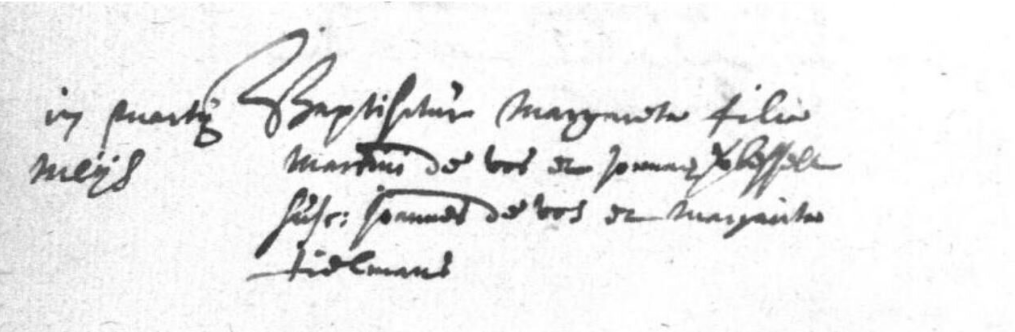 iij martij Baptisatur Margareta filia
Meijs Martini de vos et Joannae
susc: Joannes de vos et Margarita
tielmans